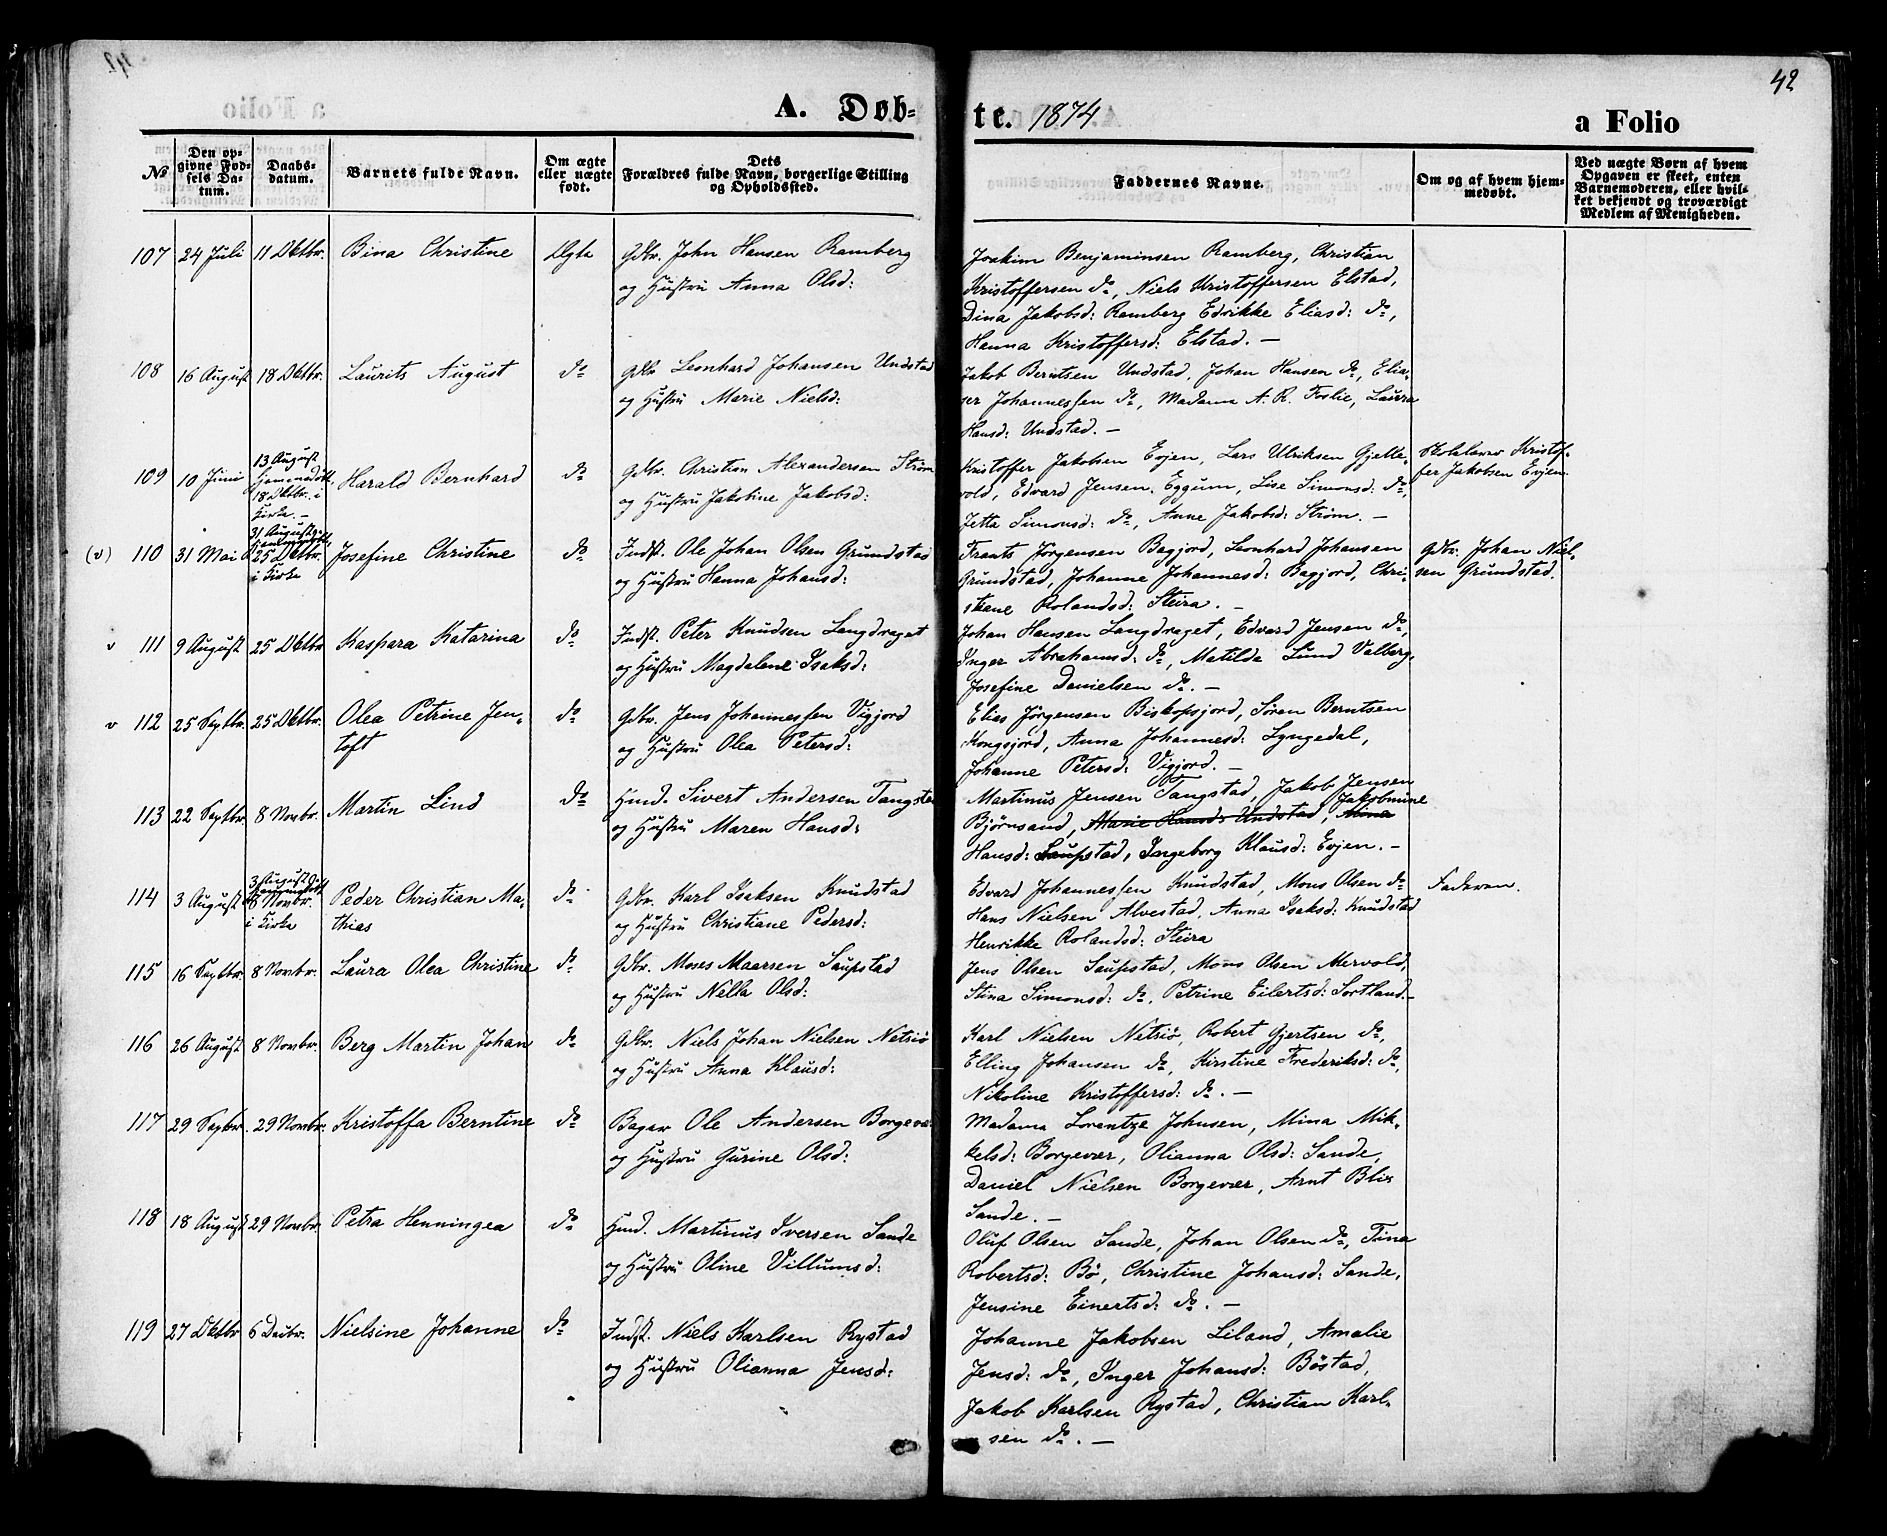 42
A. Døbte. 1874
a Folio
№
Den opgivne Fødsels Datum.
Daabsdatum.
Barnets fulde Navn.
Om ægte eller uægte født.
Dets Forældres fulde Navn, borgerlige Stilling og Opholdssted.
Faddernes Navne.
Om og af hvem hjemmedøbt.
Ved uægte Børn af hvem Opgaven er skeet, enten Barnemoderen, eller hvilket bekjendt og troværdigt Medlem af Menigheden.
107 24 Juli 11 Oktbr. Bina Christine Ægte Gdbr. John Hansen Ramberg
og Hustru Anna Olsd:
Joakim Benjaminsen Ramberg, Christian
Kristoffersen do, Niels Kristoffersen Elstad,
Dina Jakobsd: Ramberg Edrikke Eliasd: do,
Hanna Kristoffersd: Elstad. —
108 16 August 18 Oktbr. Laurits August do Gdbr Leonhard Johansen Undstad
og Hustru Marie Nielsd:
Jakob Berntsen Undstad, Johan Hansen do, Elia-
ser Johannessen do, Madame A. R. Foslie, Laura
Hansd: Undstad. —
109 10 Juni 13 August Hjemmedøbt 18 Oktbr. i Kirke. — Harald Bernhard do Gdbr. Christian Alexandersen Strøm
og Hustru Jakobine Jakobsd:
Kristoffer Jakobsen Evjen, Lars Ulriksen Gjelle-
vold, Edvard Jensen Eggum, Lise Simonsd: do,
Jetta Simonsd: do, Anne Jakobsd: Strøm. —
Skolelærer Kristof-
fer Jakobsen Evjen.
(v) 110 31 Mai 31 August Hjemmedøbt, 25 Oktbr. i Kirke Josefine Christine do Indst. Ole Johan Olsen Grundstad
og Hustru Hanna Johansd:
Frants Jørgensen Bagjord, Leonhard Johansen
Grundstad, Johanne Johannesd: Bagjord, Chri-
stiane Rolandsd: Steira. —
Gdbr. Johan Niel-
sen Grundstad.
v 111 9 August 25 Oktbr Kaspara Katarina do Indst. Peter Knudsen Langdraget
og Hustru Magdalene Isaksd:
Johan Hansen Langdraget, Edvard Jensen do,
Inger Abrahamsd: do, Matilde Lund Valberg,
Josefine Danielsen do. —
v 112 25 Septbr. 25 Oktbr. Olea Petrine Jen-
toft do Gdbr. Jens Johannessen Vigjord
og Hustru Olea Petersd:
Elias Jørgensen Biskopsjord, Søren Berntsen
Kongsjord, Anna Johannesd: Lyngedal,
Johanne Petersd: Vigjord. —
113 22 Septbr. 8 Novbr. Martin Lind do Hmd. Sivert Andersen Tangstad
og Hustru Maren Hansd:
Martinus Jensen Tangstad, Jakob Jensen
Bjørnsand, Marie Hansd: Undstad, Mina Jakobmine
Hansd: Saupstad, Ingeborg Klausd: Evjen. —
114 3 August 3 August Hjemmedøbt 8 Novbr. i Kirke Peder Christian Ma-
thias do Gdbr. Karl Isaksen Knudstad
og Hustru Christiane Pedersd:
Edvard Johannessen Knudstad, Mons Olsen do
Hans Nielsen Alvestad, Anna Isaksd: Knudstad
Henrikke Rolandsd: Steira
Faderen.
115 16 Septbr. 8 Novbr. Laura Olea Christine do Gdbr. Moses Maarsen Saupstad
og Hustru Nella Olsd:
Jens Olsen Saupstad, Mons Olsen Mervold,
Stina Simonsd: do, Petrine Eilertsd: Sortland. —
116 26 August 8 Novbr. Berg Martin Johan do Gdbr. Niels Johan Nielsen Netsiø
og Hustru Anna Klausd:
Karl Nielsen Netsiø, Robert Gjertsen do,
Elling Johansen do, Kirstine Frederiksd: do,
Nikoline Kristoffersd: do. —
117 29 Septbr. 29 Novbr. Kristoffa Berntine do Bager Ole Andersen Borgevær
og Hustru Gurine Olsd:
Madama Lorentze Johnsen, Mina Mik-
kelsd: Borgevær, Olianna Olsd: Sande,
Daniel Nielsen Borgevær, Arnt Blix
Sande. —
118 18 August 29 Novbr. Petra Henningea do Hmd. Martinus Iversen Sande
og Hustru Oline Villumsd:
Oluf Olsen Sande, Johan Olsen do, Tina
Robertsd: Bø, Christine Johansd: Sande,
Jensine Einertsd: do. —
119 27 Oktbr 6 Decbr. Nielsine Johanne do Indst. Niels Karlsen Rystad
og Hustru Olianna Jensd:
Johanne Jakobsen Liland, Amalie
Jensd: do, Inger Johansd: Bøstad,
Jakob Karlsen Rystad, Christian Karl-
sen do. —